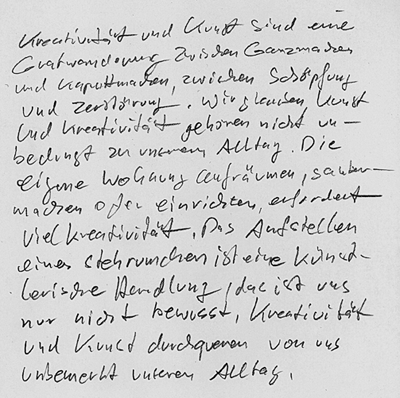 Kreativität und Kunst sind eine
Gratwanderung zwischen Ganzmachen
und Kaputtmachen, zwischen Schöpfung
und Zerstörung. Wir glauben, Kunst
und Kreativität gehören nicht un-
bedingt zu unserem Alltag. Die
eigene Wohnung aufräumen, sauber-
machen oder einrichten, erfordert
viel Kreativität. Das Aufstellen
eines Stehrumchen ist eine künst-
lerische Handlung, das ist uns
nur nicht bewusst, Kreativität
und Kunst durchqueren von uns
unbemerkt unseren Alltag.